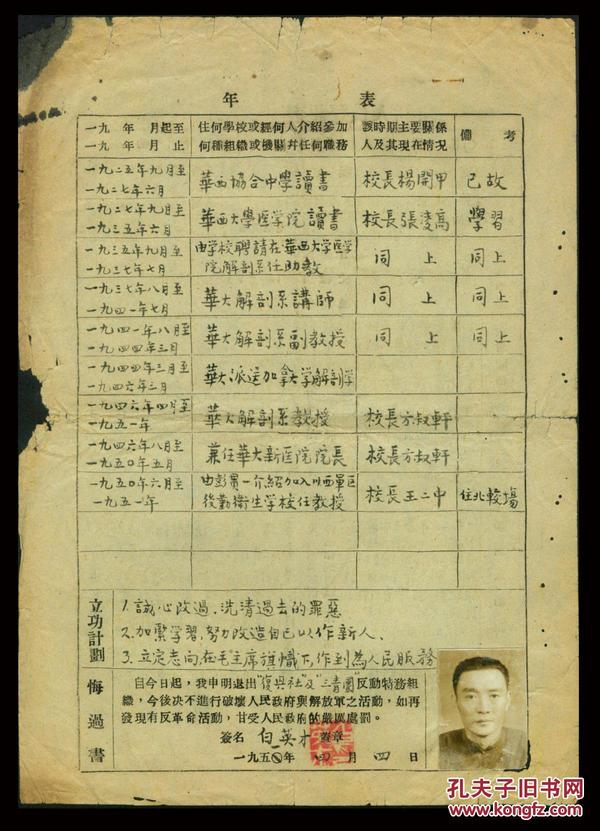 年 表
一九 年 月起至
一九 年 月止
住何學校或經何人介紹參加
何種組織或機關并任何職務
該時期主要關係
人及其現在情况
備 考
一九二五年九月至
一九二七年六月
華西協合中學讀書
校長楊開甲
已故
一九二七年九月至
一九三五年六月
華西大學医学院讀書
校長張凌高
學習
一九三五年九月至
一九三七年七月
由学校聘請在華西大学医学
院解剖系任助教
同 上
同上
一九三七年八月至
一九四一年七月
華大解剖系講師
同 上
同上
一九四一年八月至
一九四四年三月
華大解剖系副教授
同 上
同上
一九四四年三月至
一九四六年三月
華大派送加拿大学解剖学
一九四六年四月至
一九五一年
華大解剖系教授
校長方叔軒
一九四六年八月至
一九五〇年五月
兼任華大新医院院長
校長方叔軒
一九五〇年六月至
一九五一年
由彭 一介紹加入川西軍區
後勤衛生学校任教授
校長王二中
住北較場
立功計劃
1. 誠心改過，洗清過去的罪惡
2. 加緊学習，努力改造自己以作新人、
3. 立定志向，在毛主席旗幟下，作到為人民服務
悔過書
自今日起，我申明退出"復興社"及"三青團"反動特務組
織，今後决不進行破壞人民政府與解放軍之活動，如再
發現有反革命活動，甘受人民政府的嚴厲處罰。
簽名 白英才 蓋章
一九五 年 四 月 四 日
孔夫子旧书网
www.kongfz.com